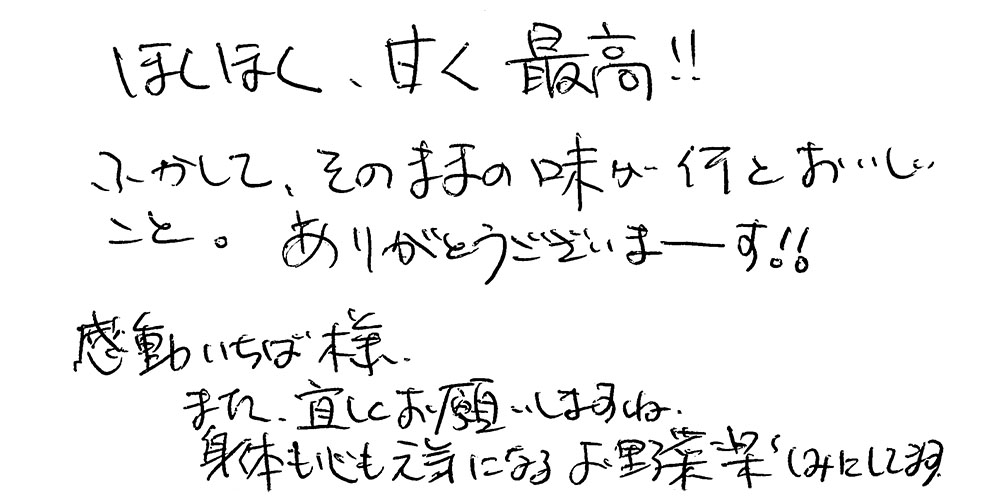 ほくほく、甘く 最高!!
ふかして、そのままの味が何とおいしい
こと。 ありがとうございまーす!!
感動いちば様.
また、宜しくお願いしますね.
身体も心も元気になるお野菜楽しみにしてます